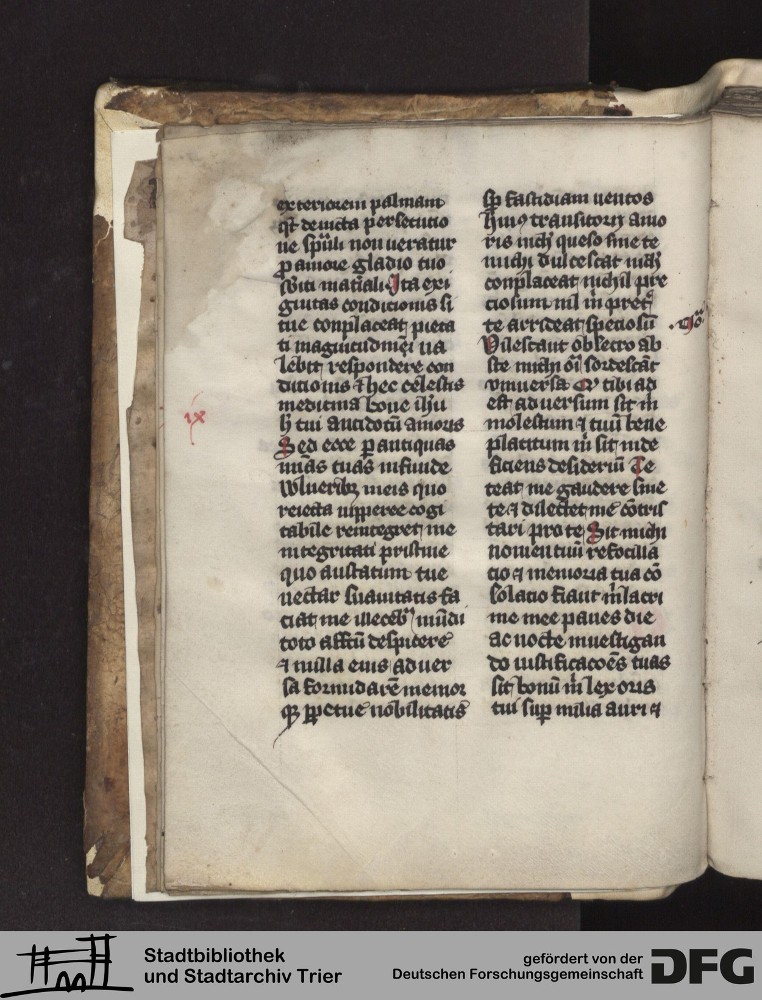 exteriorem palmam
qͣt deuicta persecutio
ne sp̄uali non ueratur
p amore gladio tuo
material Ita exi
guitas condicionis si
tue conplaceat pieta
ti magnitudini ua
lebit respondere con
dicionis ⁊ hec celestis
medicina bone ihu
ix
h̄ tui antidotū amoris
Sed ecce p antiquas
mīas tuas infunde
wlneribꝫ meis quo
reiecta nupperee cogi
tabile reintegret me
integritati pristine
quo gustatum tue
nectar suauitatis fa
ciat me illecebͥs mūdi
toto affcū despicere
⁊ nulla eius aduer
sa formidare memor
qꝫ ꝑpetue nobilitatis
sp̄ fastidiam uentos
huiꝰ transitorij amo
ris nich queso sine te
michi dulcescat nich
conplaceat nichil pre
ciosum nil m̄ pret̄
te arrideat speciosū
Vilescant obsecro ab
ste michi oī sordescāt
vniuersa Qͩ tibi ad
est aduersum sit m̄
molestum ⁊ tuū bene
placitum m̄ sit inde
ficiens desideriū Te
teat me gaudere sine
te ⁊ delectet me cōtris
tari pro te Sit michi
nomen tuū refocilla
cio ⁊ memoria tua cō
solacio fiant m̄ lacri
me mee panes die
ac nocte inuestigan
do iustificacōes tuas
sit bonū m̄ lex oris
tui sup milia auri ⁊
Stadtbibliothek
und Stadtarchiv Trier
gefördert von der
Deutschen Forschungsgemeinschaft
DFG